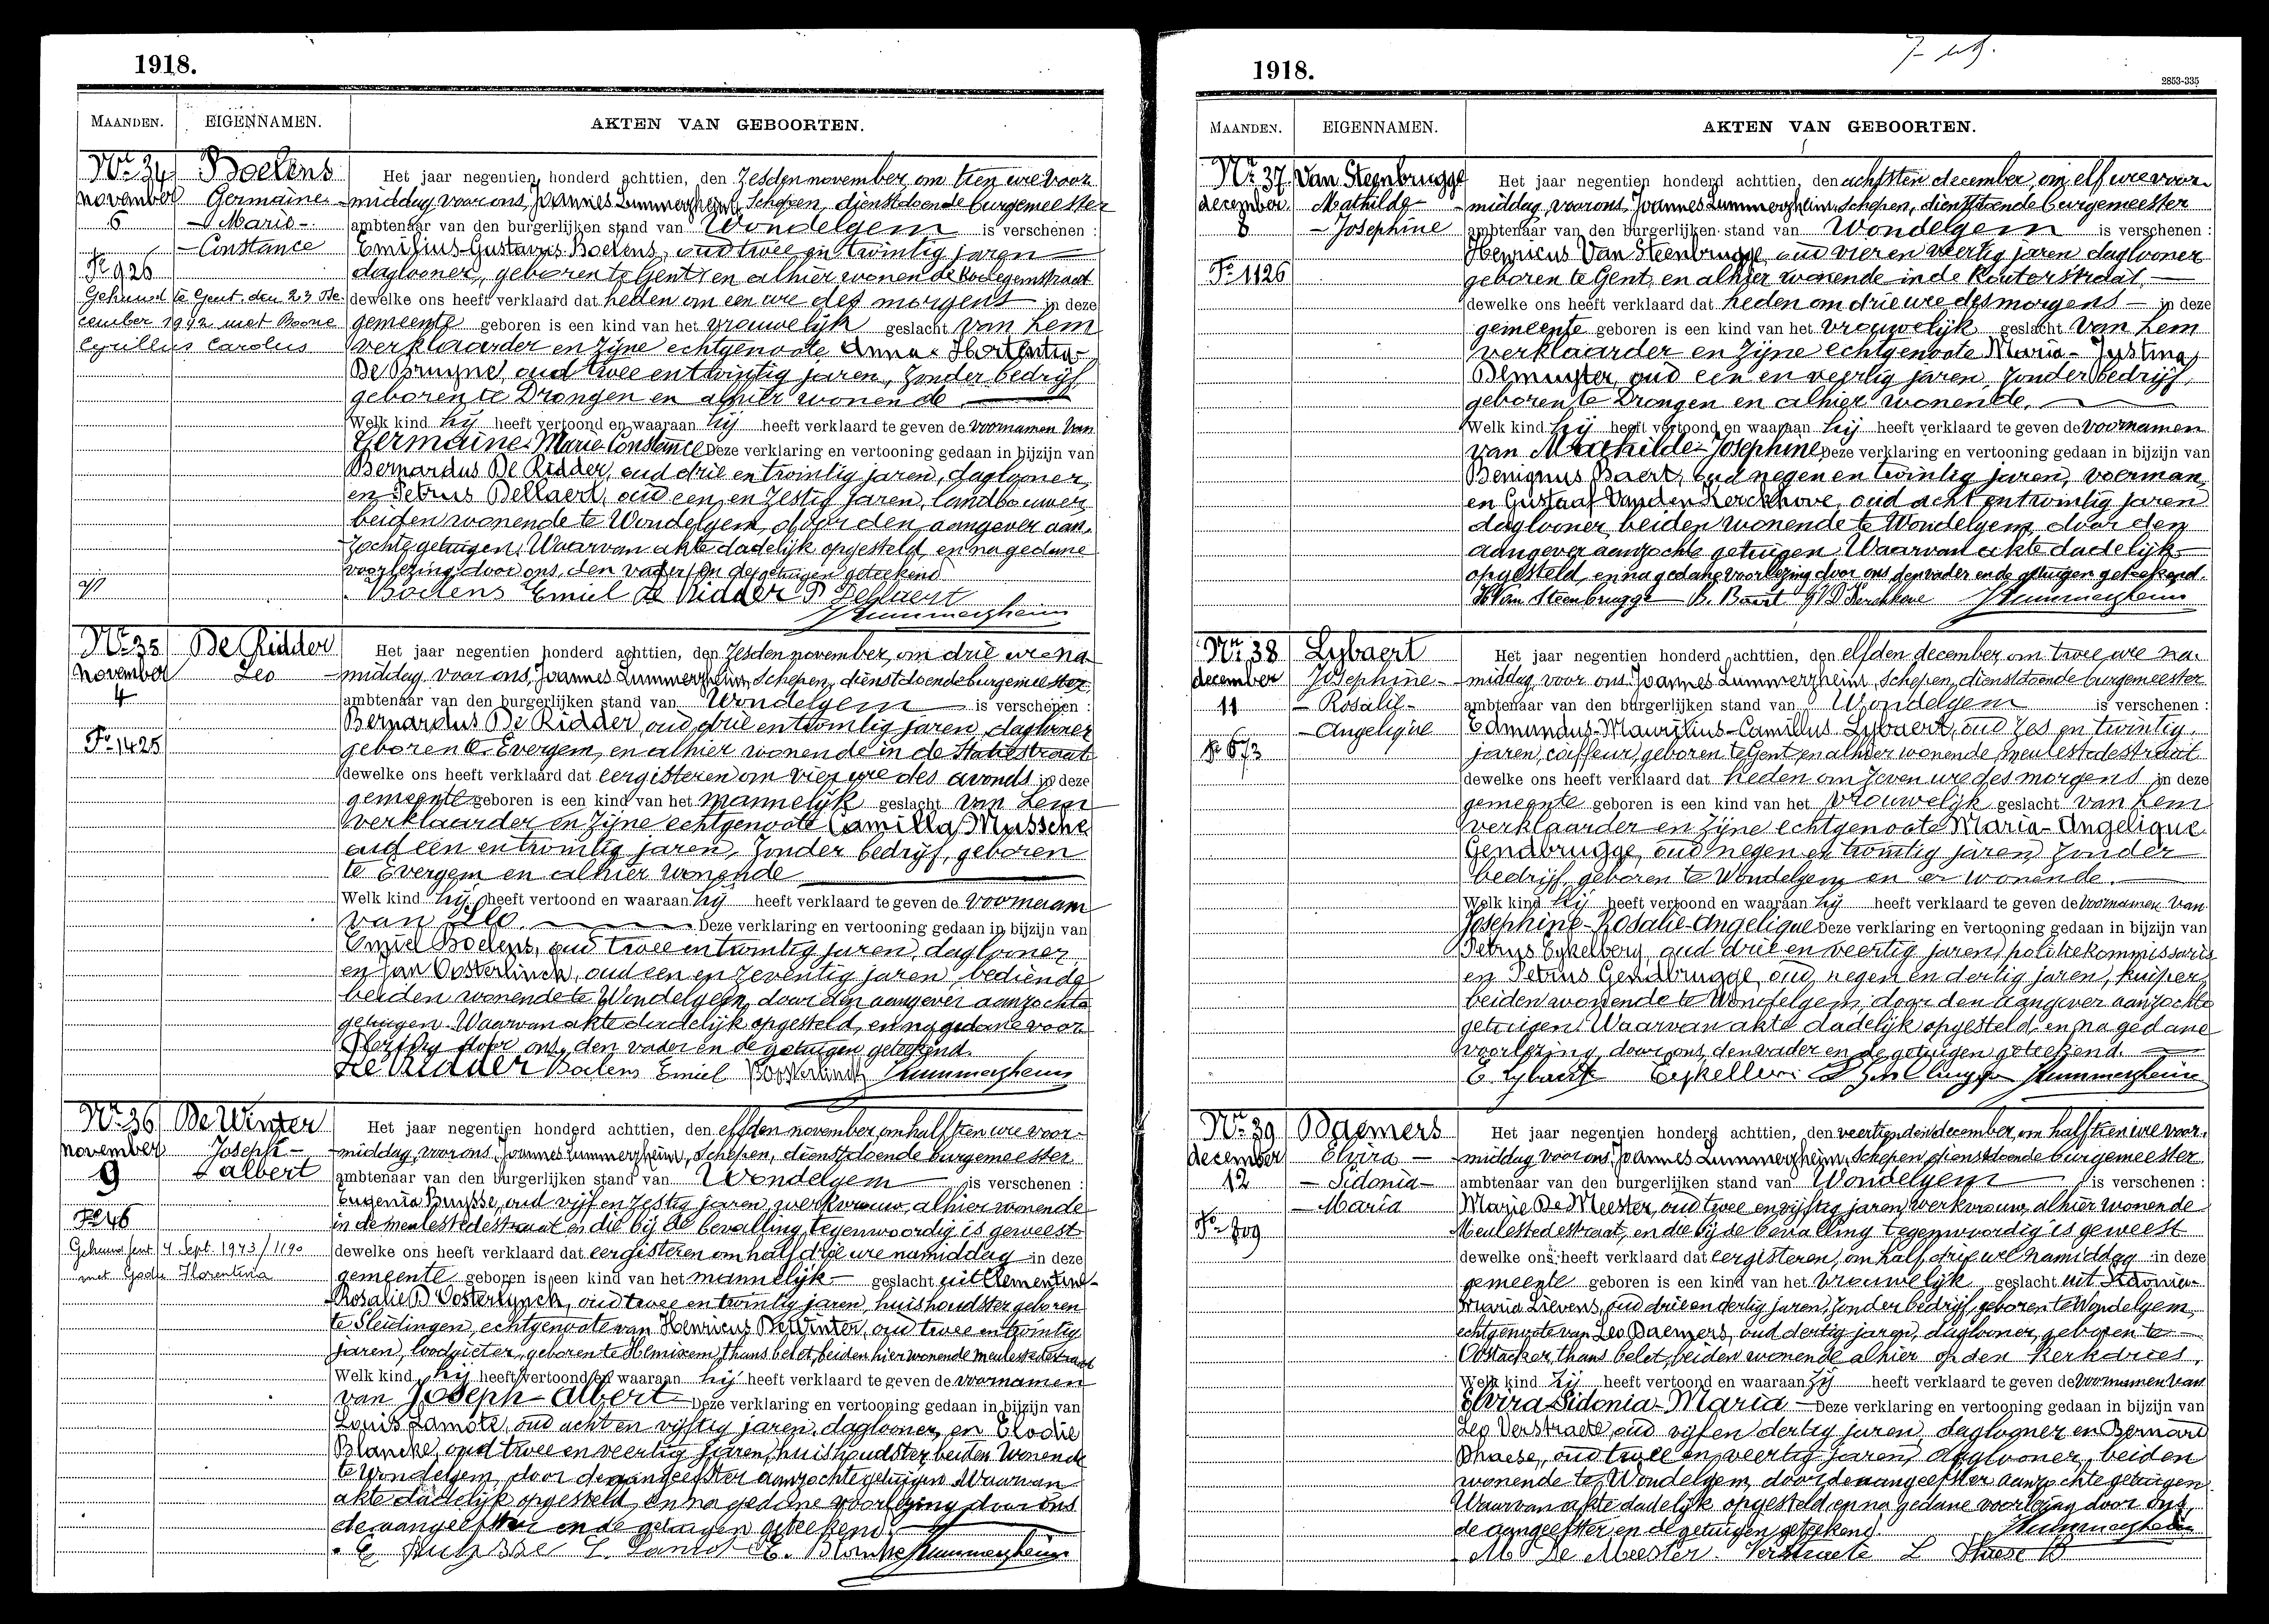 1918.
MAANDEN. EIGENNAMEN. AKTEN VAN GEBOORTEN.
Nr. 34 Boelens Het jaar negentien honderd achttien, den zesden november, om tien ure voor-
november Germaine- middag, voor ons, Joannes Lummerzheim, Schepen, dienstdoende burgemeester
6 -Marie- ambtenaar van den burgerlijken stand van Wondelgem is verschenen :
-Constance Emilius-Gustavus Boelens, oud twee en twintig jaren
Fo 926 daglooner, geboren te Gent en alhier wonende
Gehuwd te Gent, den 23 De- dewelke ons heeft verklaard dat heden om een ure des morgens in deze
cember 1942 met Boone gemeente geboren is een kind van het vrouwelijk geslacht van hem
Cyrillus Carolus verklaarder en zijne echtgenoote Anna-Hortentia
De Bruyne, oud twee en twintig jaren, zonder bedrijf
geboren te Drongen en alhier wonende
Welk kind hij heeft vertoond en waaraan hij heeft verklaard te geven de voornamen van
Germaine-Marie-Constance Deze verklaring en vertooning gedaan in bijzijn van
Bernardus De Ridder, oud drie en twintig jaren, daglooner,
en Petrus Dellaert, oud een en zestig jaren, landbouwer,
beiden wonende te Wondelgem, door den aangever aan-
zochte getuigen. Waarvan akte dadelijk opgesteld en na gedane
voorlezing door ons, den vader en de getuigen geteekend
Boelens Emiel De Ridder P Dellaert
JLummerzheim
Nr. 35 De Ridder Het jaar negentien honderd achttien, den zesden november, om drie ure na-
november Leo middag, voor ons, Joannes Lummerzheim, Schepen, dienstdoende burgemeester
4 ambtenaar van den burgerlijken stand van Wondelgem is verschenen :
Bernardus De Ridder, oud drie en twintig jaren, daglooner
Fo 1425 geboren te Evergem, en alhier wonende in de Statiestraat
dewelke ons heeft verklaard dat eergisteren om vier ure des avonds in deze
gemeente geboren is een kind van het mannelijk geslacht van hem
verklaarder en zijne echtgenoote Camilla Mussche
oud een en twintig jaren, zonder bedrijf, geboren
te Evergem en alhier wonende
Welk kind hij heeft vertoond en waaraan hij heeft verklaard te geven de voornaam
van Leo. Deze verklaring en vertooning gedaan in bijzijn van
Emiel Boelens, oud twee en twintig jaren, daglooner
en Jan Oosterlinck, oud een en zeventig jaren, bediende
beiden wonende te Wondelgem, door den aangever aanzochte
getuigen. Waarvan akte dadelijk opgesteld, en na gedane voor-
lezing door ons, den vader en de getuigen geteekend.
De Ridder Boelens Emiel JOosterlinck JLummerzheim
Nr. 36 De Winter Het jaar negentien honderd achttien, den elfden november, om half tien ure voor-
november Joseph- middag, voor ons, Joannes Lummerzheim, Schepen, dienstdoende burgemeester
9 -albert ambtenaar van den burgerlijken stand van Wondelgem is verschenen :
Eugenia Buysse, oud vijf en zestig jaren, werkvrouw, alhier wonende
Fo 46 in de meulestedestraat en die bij de bevalling tegenwoordig is geweest
Gehuwd Gent 4 Sept. 1943/1190 dewelke ons heeft verklaard dat eergisteren om half drie ure namiddag in deze
met Florentina gemeente geboren is een kind van het mannelijk geslacht uit Clementine-
Rosalie D'Oosterlynck, oud twee en twintig jaren, huishoudster geboren
te Sleidingen, echtgenoote van Henricus De Winter, oud twee en twintig
jaren, loodgieter, geboren te Hemixem, thans belet, beiden hier wonende meulestedestraat
Welk kind hij heeft vertoond en waaraan hij heeft verklaard te geven de voornamen
van Joseph-albert Deze verklaring en vertooning gedaan in bijzijn van
Louis Lamote, oud acht en vijftig jaren, daglooner, en Elodie
Blancke, oud twee en veertig jaren, huishoudster, beiden wonende
te Wondelgem, door de aangeefster aanzochte getuigen. Waarvan
akte dadelijk opgesteld, en na gedane voorlezing door ons
de aangeefster en de getuigen geteekend.
E Buysse L. Lamot E. Blancke JLummerzheim
1918.
2853-335
MAANDEN. EIGENNAMEN. AKTEN VAN GEBOORTEN.
Nr. 37 Van Steenbrugge Het jaar negentien honderd achttien, den achtsten december, om elf ure voor-
december Mathilde- middag, voor ons, Joannes Lummerzheim, Schepen, dienstdoende burgemeester
8 -Josephine ambtenaar van den burgerlijken stand van Wondelgem is verschenen :
Henricus Van Steenbrugge, oud vier en veertig jaren daglooner
Fo 1126 geboren te Gent, en alhier wonende in de Kouterstraat
dewelke ons heeft verklaard dat heden om drie ure des morgens in deze
gemeente geboren is een kind van het vrouwelijk geslacht van hem
verklaarder en zijne echtgenoote Maria-Justina
Demuyter, oud een en veertig jaren, zonder bedrijf,
geboren te Drongen en alhier wonende.
Welk kind hij heeft vertoond en waaraan hij heeft verklaard te geven de voornamen
van Mathilde-Josephine Deze verklaring en vertooning gedaan in bijzijn van
Benignus Baert, oud negen en twintig jaren, voerman,
en Gustaaf Vanden Kerckhove, oud acht en twintig jaren
daglooner, beiden wonende te Wondelgem, door den
aangever aanzochte getuigen. Waarvan akte dadelijk
opgesteld, en na gedane voorlezing door ons den vader en de getuigen geteekend.
H Van Steenbrugge B. Baert G VD Kerckhove JLummerzheim
Nr. 38 Lybaert Het jaar negentien honderd achttien, den elfden december om twee ure na-
december Josephine- middag, voor ons, Joannes Lummerzheim, Schepen, dienstdoende burgemeester
11 -Rosalie- ambtenaar van den burgerlijken stand van Wondelgem is verschenen :
-Angelique Edmundus-Mauritius-Camillus Lybaert, oud zes en twintig
Fo 673 jaren, coiffeur, geboren te Gent en alhier wonende, meulestedestraat
dewelke ons heeft verklaard dat heden om zeven ure des morgens in deze
gemeente geboren is een kind van het vrouwelijk geslacht van hem
verklaarder en zijne echtgenoote Maria-Angelique
Gendbrugge, oud negen en twintig jaren, zonder
bedrijf, geboren te Wondelgem en er wonende.
Welk kind hij heeft vertoond en waaraan hij heeft verklaard te geven de voornamen van
Josephine-Rosalie-Angelique Deze verklaring en vertooning gedaan in bijzijn van
Petrus Eykelberg, oud drie en veertig jaren, politiekommissaris
en Petrus Gendbrugge, oud negen en dertig jaren, kuiper,
beiden wonende te Wondelgem, door den aangever aanzochte
getuigen. Waarvan akte dadelijk opgesteld, en na gedane
voorlezing, door ons, den vader en de getuigen geteekend.
E. Lybaert JLummerzheim
Nr. 39 Daemers Het jaar negentien honderd achttien, den veertienden december, om half tien ure voor-
december Elvira- middag, voor ons, Joannes Lummerzheim, Schepen dienstdoende burgemeester
12 -Sidonia- ambtenaar van den burgerlijken stand van Wondelgem is verschenen :
-Maria Marie De Meester, oud twee en vijftig jaren, werkvrouw, alhier wonende
Fo 709 Meulestedestraat, en die bij de bevalling tegenwoordig is geweest
dewelke ons heeft verklaard dat eergisteren, om half drie ure namiddag in deze
gemeente geboren is een kind van het vrouwelijk geslacht uit Sidonia-
Maria Lievens, oud drie en dertig jaren, zonder bedrijf, geboren te Wondelgem,
echtgenoote van Leo Daemers, oud dertig jaren, daglooner, geboren te
Oostacker, thans belet, beiden wonende alhier op den Kerkdries.
Welk kind zij heeft vertoond en waaraan zij heeft verklaard te geven de voornamen van
Elvira Sidonia-Maria Deze verklaring en vertooning gedaan in bijzijn van
Leo Verstraete, oud vijf en dertig jaren, daglooner en Bernard
Dhaese, oud twee en veertig jaren, daglooner, beiden
wonende te Wondelgem, door de aangeefster aanzochte getuigen.
Waarvan akte dadelijk opgesteld en na gedane voorlezing door ons,
de aangeefster en de getuigen geteekend. JLummerzheim
M De Meester. Verstraete L Dhaese B